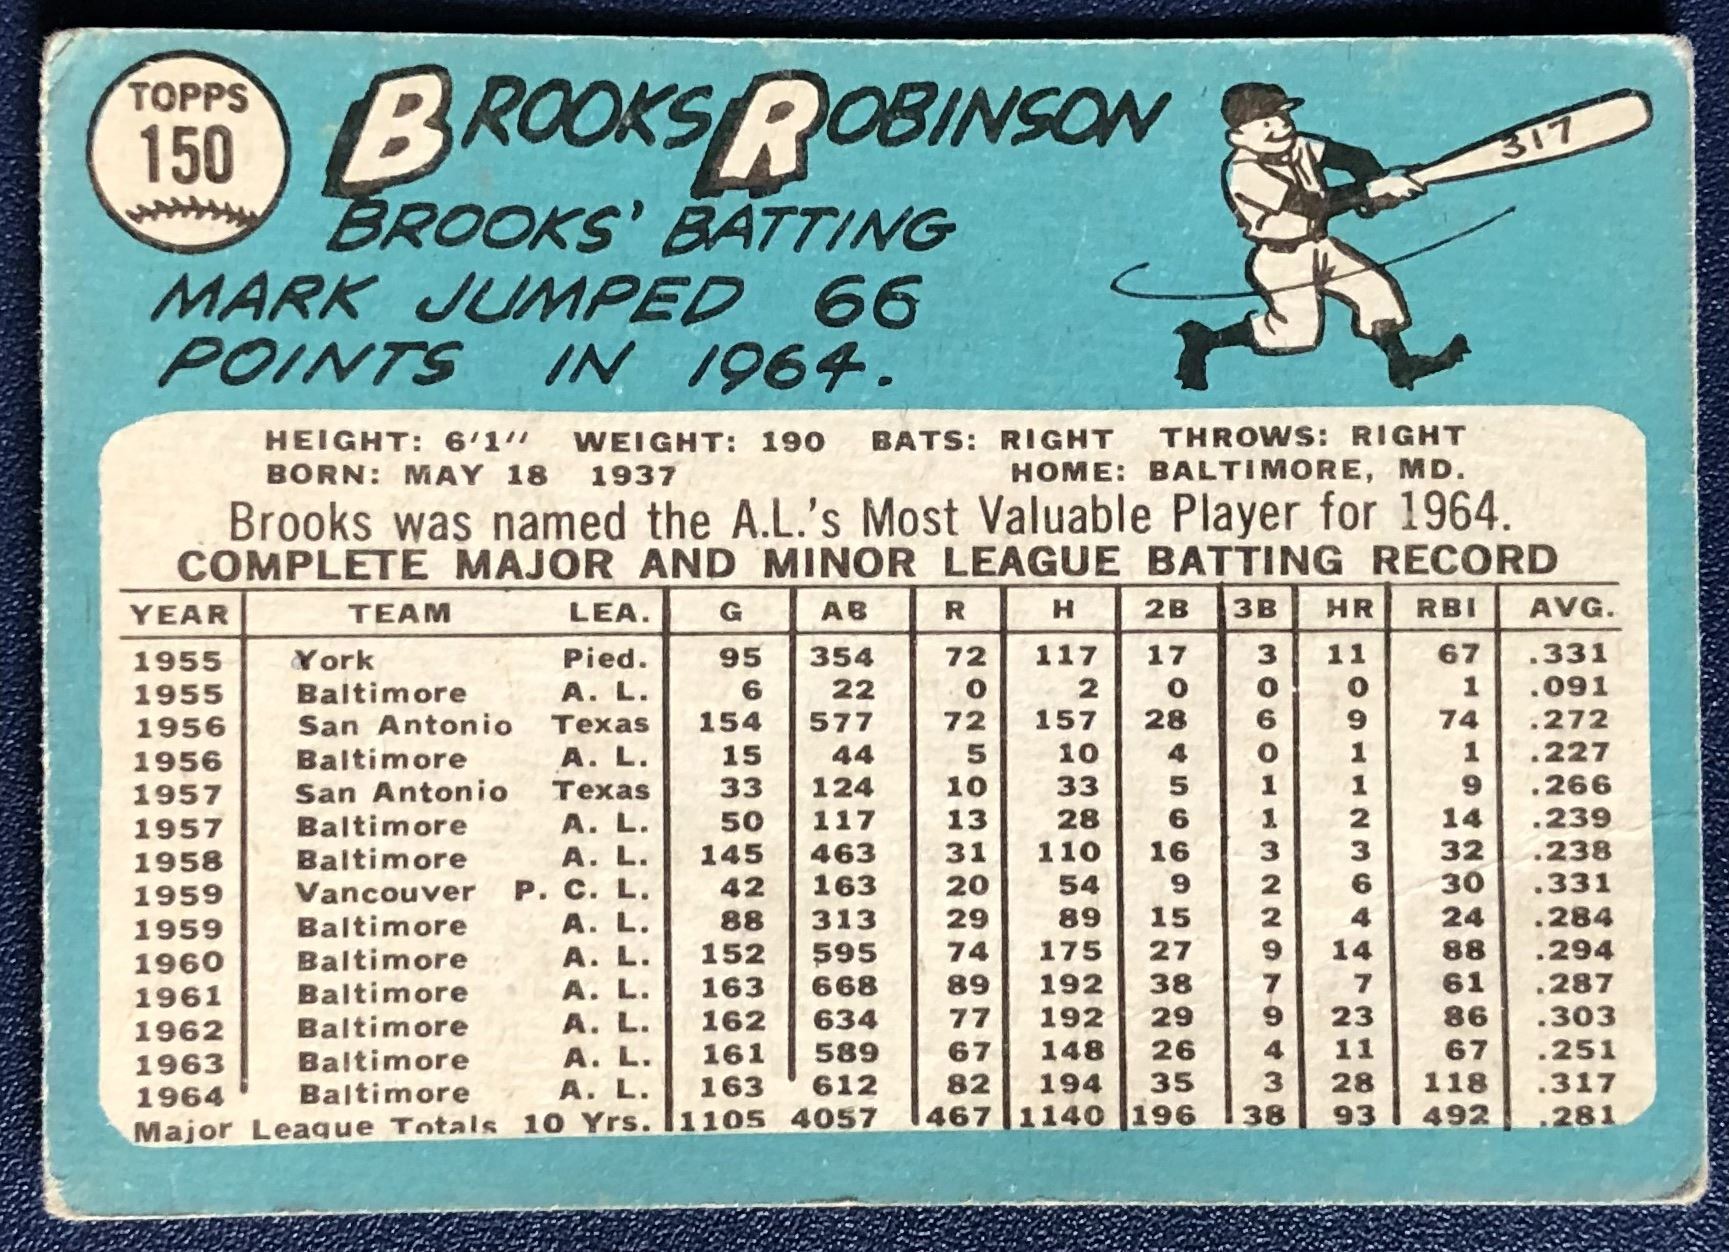 TOPPS
150
BROOKS ROBINSON
317
BROOKS' BATTING
MARK JUMPED 66
POINTS IN 1964.
HEIGHT: 6'1" WEIGHT: 190 BATS: RIGHT THROWS: RIGHT
BORN: MAY 18 1937 HOME: BALTIMORE, MD.
Brooks was named the A.L.'s Most Valuable Player for 1964.
COMPLETE MAJOR AND MINOR LEAGUE BATTING RECORD
YEAR TEAM LEA. G AB R H 2B 3B HR RBI AVG.
1955 York Pied. 95 354 72 117 17 3 11 67 .331
1955 Baltimore A. L. 6 22 0 2 0 0 0 1 .091
1956 San Antonio Texas 154 577 72 157 28 6 9 74 .272
1956 Baltimore A. L. 15 44 5 10 4 0 1 1 .227
1957 San Antonio Texas 33 124 10 33 5 1 1 9 .266
1957 Baltimore A. L. 50 117 13 28 6 1 2 14 .239
1958 Baltimore A. L. 145 463 31 110 16 3 3 32 .238
1959 Vancouver P. C. L. 42 163 20 54 9 2 6 30 .331
1959 Baltimore A. L. 88 313 29 89 15 2 4 24 .284
1960 Baltimore A. L. 152 595 74 175 27 9 14 88 .294
1961 Baltimore A. L. 163 668 89 192 38 7 7 61 .287
1962 Baltimore A. L. 162 634 77 192 29 9 23 86 .303
1963 Baltimore A. L. 161 589 67 148 26 4 11 67 .251
1964 Baltimore A. L. 163 612 82 194 35 3 28 118 .317
Major League Totals 10 Yrs. 1105 4057 467 1140 196 38 93 492 .281